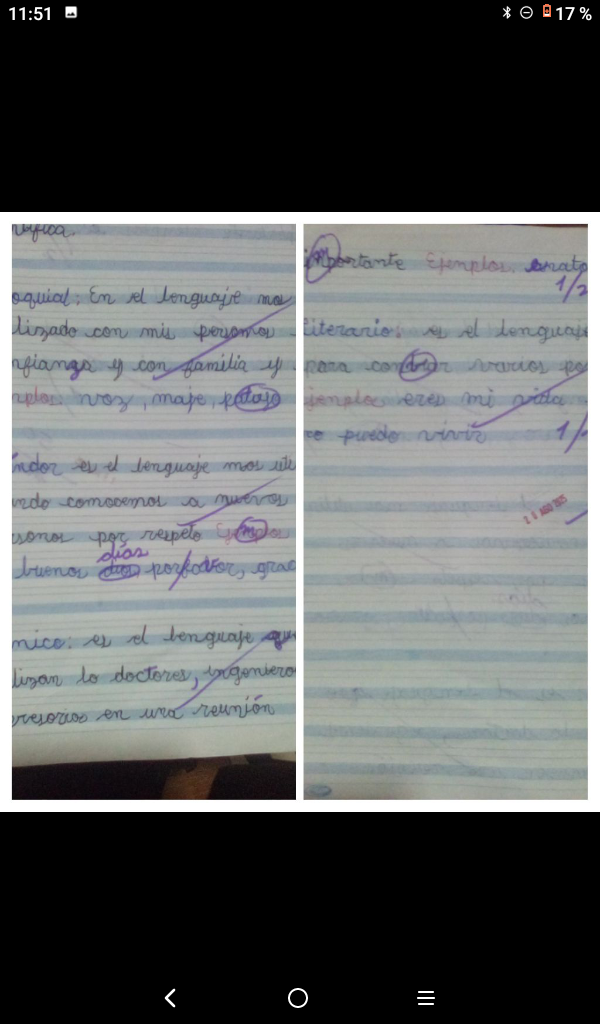 11:51
17 %
oquial: En el lenguaje mas
lizado con mis personas
nfianza y con familia y
nplos voz, maje,
ndor es el lenguaje mas uti
ndo conocemos a nuevos
sonas por respeto
dias
buenos porfavor, grac
mico: es el lenguaje que
lizan lo doctores, ingeniero
en una reunión
importante Ejemplos.
1/2
Literario: es el lenguaje
para varios po
jemplo eres mi vida
co puedo vivir 1/